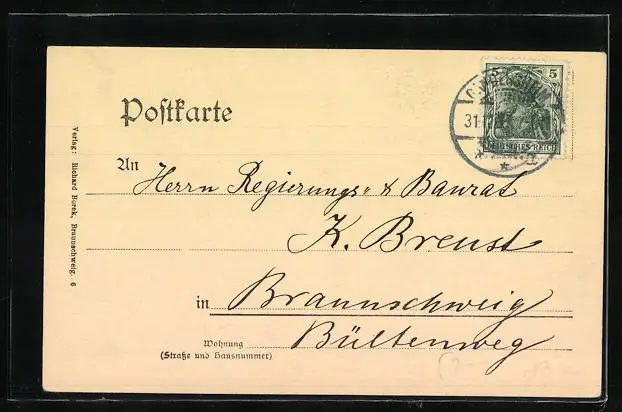 Postkarte
5
31.
DEUTSCHES REICH
An Herrn Regierungs- & Baurat
K. Breust
in Braunschweig
Wohnung Bültenweg
(Straße und Hausnummer)
Verlag: Richard Borek, Braunschweig. 6